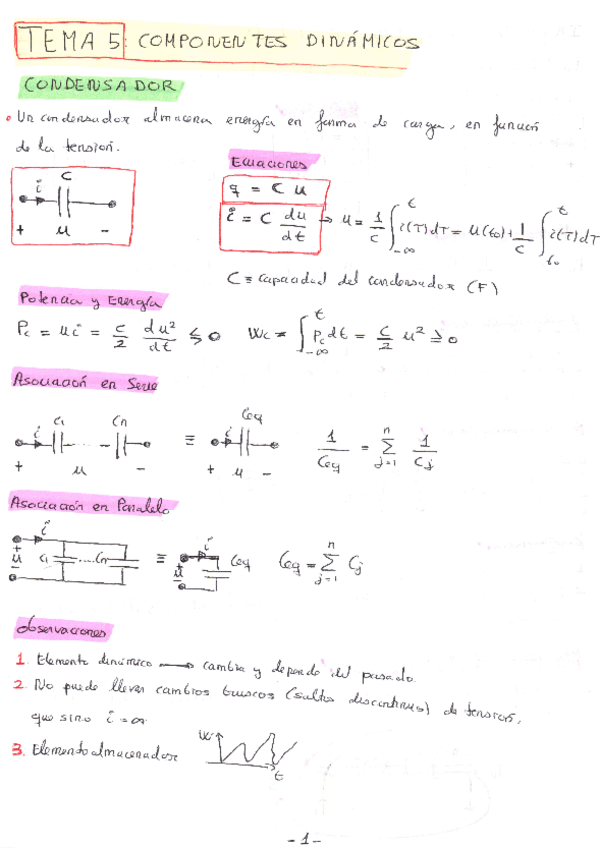 TEMA 5: COMPONENTES DINÁMICOS
CONDENSADOR
• Un condensador almacena energía en forma de carga, en función
de la tensión.
Ecuaciones
C
i
+ u -
q = C u
i = C du/dt → u = 1/C ∫_{-∞}^{t} i(τ)dτ = u(t₀) + 1/C ∫_{t₀}^{t} i(τ)dτ
C ≡ capacidad del condensador (F)
Potencia y Energía
Pc = ui = C/2 du²/dt ≶ 0 Wc = ∫_{-∞}^{t} Pc dt = C/2 u² ≥ 0
Asociación en Serie
i C₁ ... Cn ≡ i Ceq 1/Ceq = Σ_{j=1}^{n} 1/Cj
+ u - + u -
Asociación en Paralelo
i + u - C₁ .... Cn ≡ i + u - Ceq Ceq = Σ_{j=1}^{n} Cj
Observaciones
1. Elemento dinámico → cambia y depende del pasado.
2. No puede llevar cambios bruscos (saltos discontinuos) de tensión,
que sino i = ∞
3. Elemento almacenador
t
- 1 -